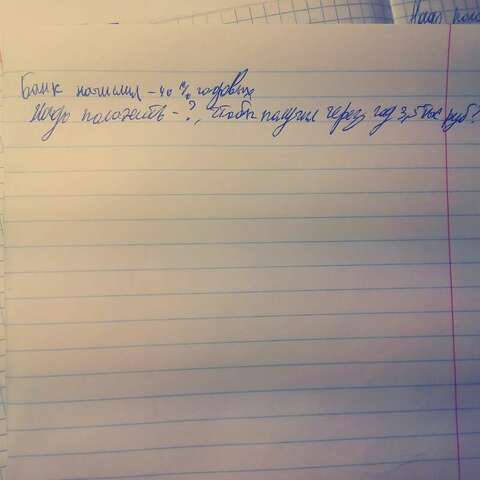 Надо поло
Банк начислил - 40 % годовых
Надо положить - ?, чтобы получил через год 3,5 тыс руб?